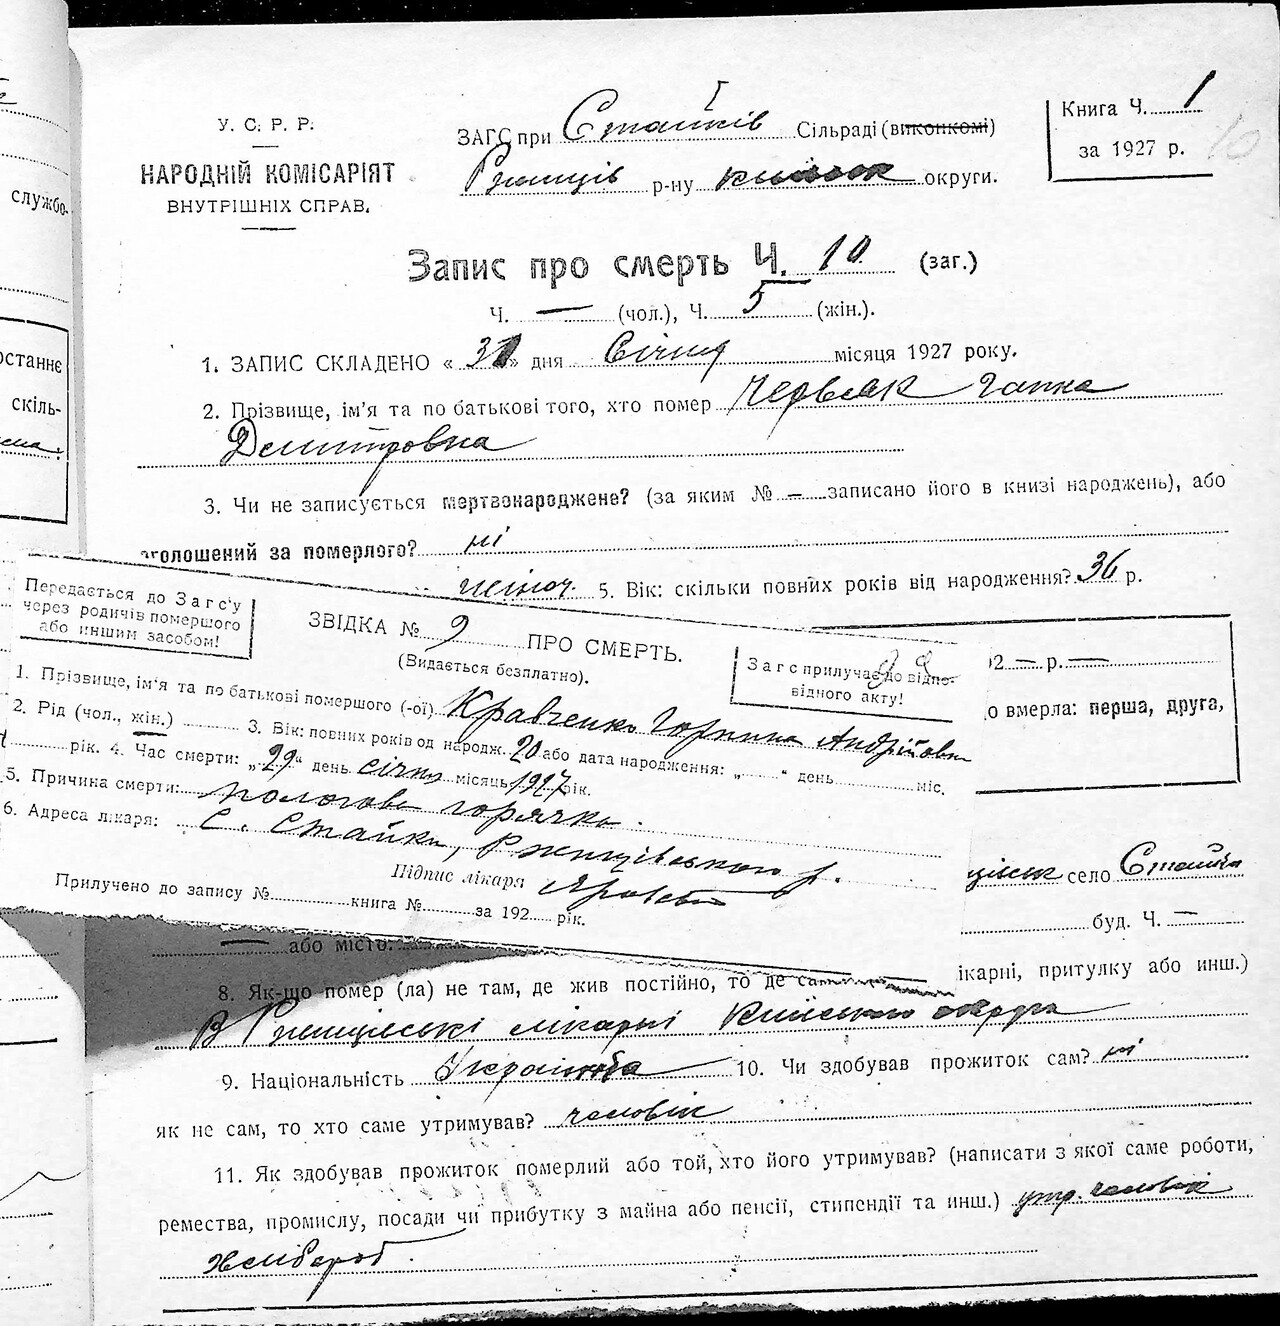 службо-
останнє
скіль-
У. С. Р. Р.
НАРОДНІЙ КОМІСАРІЯТ
ВНУТРІШНІХ СПРАВ.
ЗАГС при Стайків Сільраді (виконкомі)
р-ну округи.
Книга Ч. 1
за 1927 р.
10
Запис про смерть Ч. 10 (заг.)
Ч. — (чол.), Ч. 5 (жін.).
1. ЗАПИС СКЛАДЕНО « 31 » дня Січня місяця 1927 року.
2. Прізвище, ім'я та по батькові того, хто помер Червяк Гапка
Демитровна
3. Чи не записується мертвонароджене? (за яким № — записано його в книзі народжень), або
оголошений за померлого? ні
жіноч. 5. Вік: скільки повних років від народження? 36 р.
Передається до Загс'у
через родичів помершого
або иншим засобом!
ЗВІДКА № 9 ПРО СМЕРТЬ.
(Видається безплатно).
Загс прилучає до відпо-
відного акту!
1. Прізвище, ім'я та по батькові помершого (-ої) Кравченко Горпина Андрійовна
2. Рід (чол., жін.) 3. Вік: повних років од народж. 20 або дата народження: „ “ день міс.
рік. 4. Час смерти: „29“ день січня місяць 1927 рік.
5. Причина смерти: пологова горячка.
6. Адреса лікаря: С. Стайки, Ржищівського р.
Підпис лікаря
Прилучено до запису № книга № за 192 рік.
92 — р. —
о вмерла: перша, друга,
село Стайки
буд. Ч. —
— або місто:
8. Як-що помер (ла) не там, де жив постійно, то де сам лікарні, притулку або инш.)
В Ржищівські лікарні Київського округа
9. Національність Українка 10. Чи здобував прожиток сам? ні
як не сам, то хто саме утримував? чоловік
11. Як здобував прожиток померлий або той, хто його утримував? (написати з якої саме роботи,
ремества, промислу, посади чи прибутку з майна або пенсії, стипендії та инш.) утр. чоловік
хлібороб.